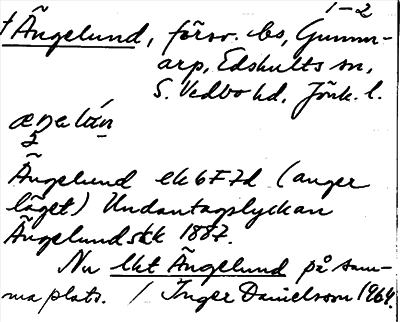 1-2
† Ängelund, försv. bs, Gunnar-
arp, Edshults sn,
S. Vedbo hd, Jönk. l.
Ängelund ek 6F7d (anger
läget) Undantagslyckan
Ängelundskk 1887.
Nu lht Ängelund på sam-
ma plats. / Inger Danielsson 1964.